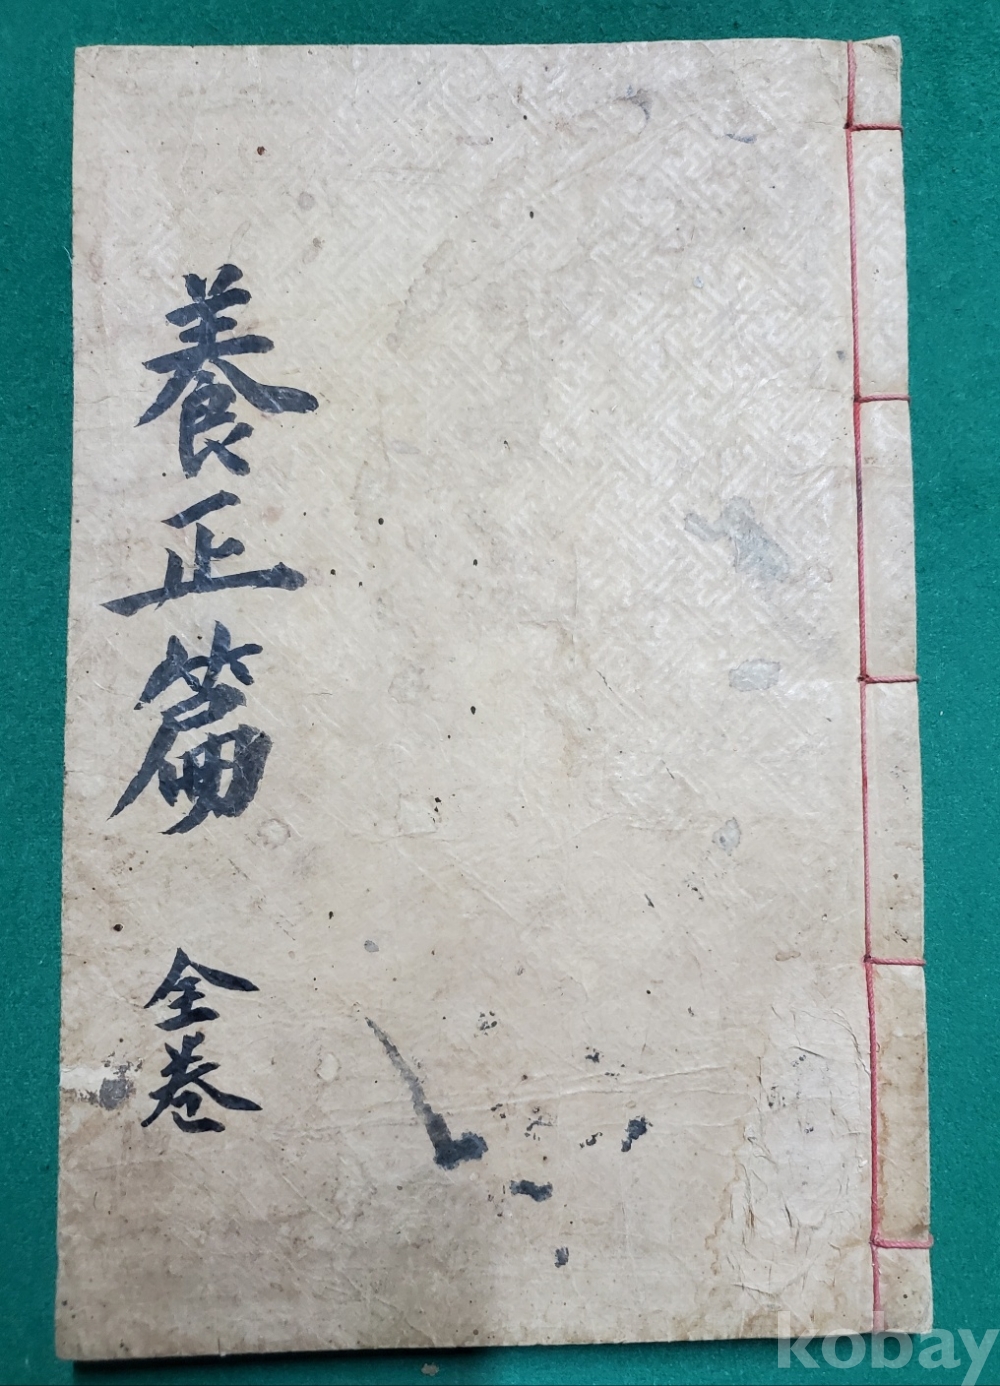 養正篇
全卷
kobay